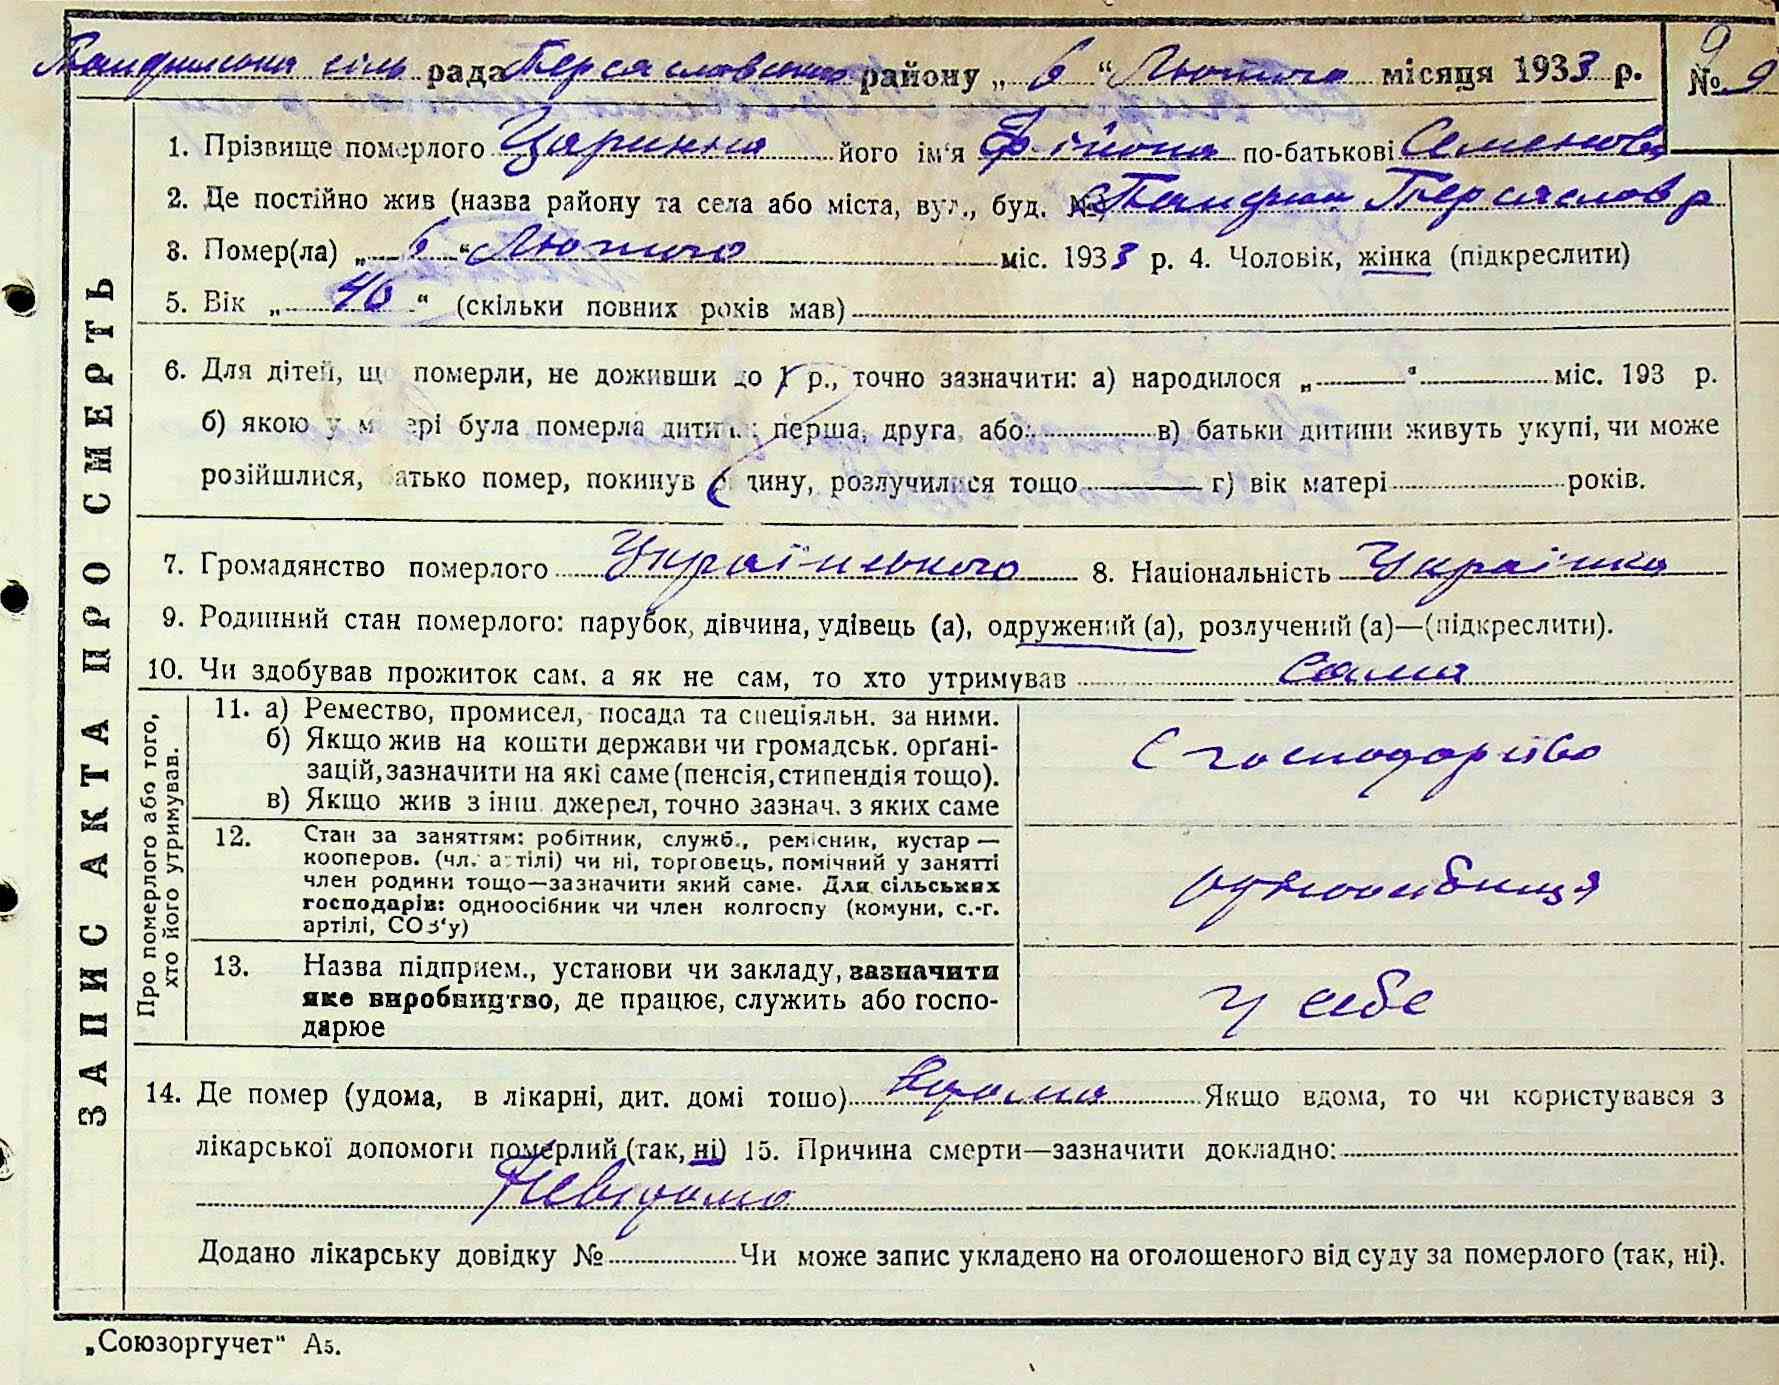 сіль рада Переяславського району „ 6 “ Лютого місяця 1933 р. № 9
9
ЗАПИС АКТА ПРО СМЕРТЬ
1. Прізвище померлого Царинна його ім‘я по-батькові Семеновна
2. Де постійно жив (назва району та села або міста, вул., буд. № Переяслов р
3. Помер(ла) „ 6 “ Лютого міс. 1933 р. 4. Чоловік, жінка (підкреслити)
5. Вік „ 40 “ (скільки повних років мав)
6. Для дітей, що померли, не доживши до 1 р., точно зазначити: а) народилося „ “ міс. 193 р.
б) якою у матері була померла дитина: перша, друга, або: в) батьки дитини живуть укупі, чи може
розійшлися, батько помер, покинув родину, розлучилися тощо г) вік матері років.
7. Громадянство померлого Українського 8. Національність Українка
9. Родинний стан померлого: парубок, дівчина, удівець (а), одружений (а), розлучений (а)—(підкреслити).
10. Чи здобував прожиток сам, а як не сам, то хто утримував Сама
Про померлого або того, хто його утримував.
11. а) Ремество, промисел, посада та спеціяльн. за ними.
б) Якщо жив на кошти держави чи громадськ. орґані-
зацій, зазначити на які саме (пенсія, стипендія тощо).
в) Якщо жив з інш. джерел, точно зазнач. з яких саме
С господарство
12. Стан за заняттям: робітник, служб., ремісник, кустар —
кооперов. (чл. артілі) чи ні, торговець, помічний у занятті
член родини тощо—зазначити який саме. Для сільських
господарів: одноосібник чи член колгоспу (комуни, с.-г.
артілі, СОЗ‘у)
одноосібниця
13. Назва підприєм., установи чи закладу, зазначити
яке виробництво, де працює, служить або госпо-
дарює
у себе
14. Де помер (удома, в лікарні, дит. домі тощо) вдома Якщо вдома, то чи користувався з
лікарської допомоги померлий (так, ні) 15. Причина смерти—зазначити докладно:
Невідомо
Додано лікарську довідку № Чи може запис укладено на оголошеного від суду за померлого (так, ні).
„Союзоргучет“ А5.